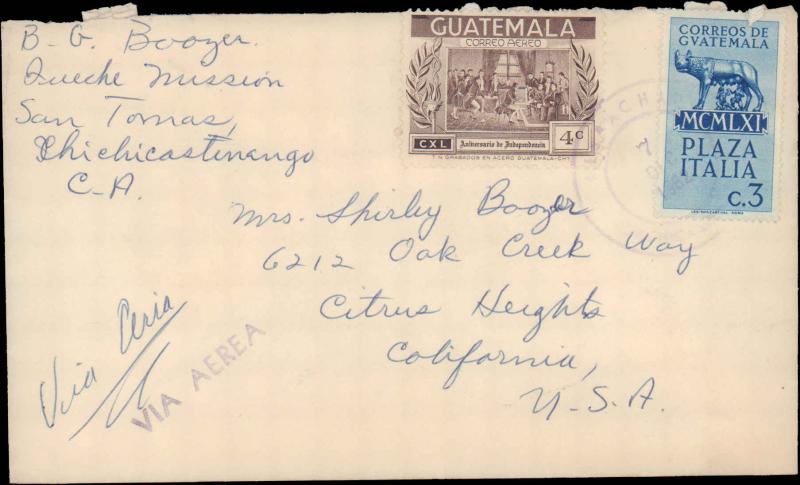 B-G. Boozer.
Queche Mission
San Tomas,
Chichicastinango
C-A.
GUATEMALA
CORREO AEREO
CXL
Aniversario de Independencia
4c
T.N. GRABADOS EN ACERO GUATEMALA-
CORREOS DE
GUATEMALA
MCMLXI
PLAZA
ITALIA
c.3
Mrs. Shirley Boozer
6212 Oak Creek Way
Citrus Heights
California,
U.S.A.
Via Aeria
VIA AEREA